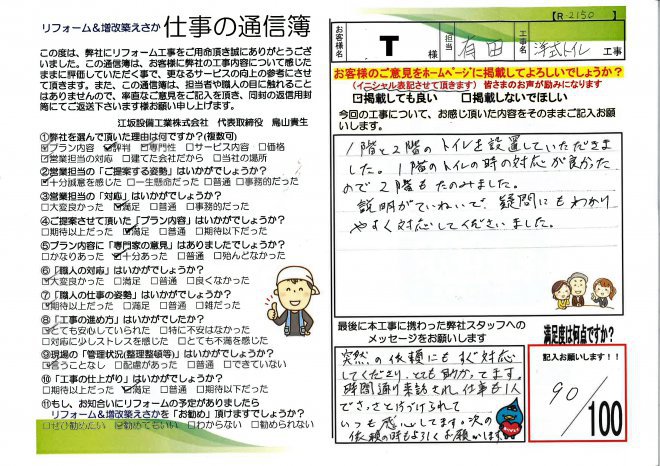 リフォーム&増改築えさか 仕事の通信簿
この度は、弊社にリフォーム工事をご用命頂き誠にありがとうござ
いました。この通信簿は、お客様に弊社の工事内容について感じた
ままに評価していただく事で、更なるサービスの向上の参考にさせ
て頂きます。また、この通信簿は、担当者や職人の目に触れること
はありませんので、率直なご意見をご記入を頂き、同封の返信用封
筒にてご返送下さいます様お願い申し上げます。
江坂設備工業株式会社 代表取締役 鳥山貴生
①弊社を選んで頂いた理由は何ですか?(複数可)
☑プラン内容 ☑評判 ☑専門性 □サービス内容 □価格
☑営業担当の対応 □建てた会社だから □当社の場所
②営業担当の「ご提案する姿勢」はいかがでしょうか?
☑十分誠意を感じた □一生懸命だった □普通 □事務的だった
③営業担当の「対応」はいかがでしょうか?
□大変良かった ☑満足 □普通 □事務的だった
④ご提案させて頂いた「プラン内容」はいかがでしょうか?
□期待以上だった ☑満足 □普通 □期待以下だった
⑤プラン内容に「専門家の意見」はありましたでしょうか?
□かなりあった ☑十分あった □普通 □殆んどなかった
⑥「職人の対応」はいかがでしょうか?
☑大変良かった □満足 □普通 □良くなかった
⑦「職人の仕事の姿勢」はいかがでしょうか?
☑期待以上だった □満足 □普通 □雑だった
⑧「工事の進め方」はいかがでしょうか?
☑とても安心していられた □特に不安はなかった
□対応に少しストレスを感じた □とても不満を感じた
⑨現場の「管理状況(整理整頓等)」はいかがでしょうか?
☑言うことなし □配慮があった □普通 □できていない
⑩「工事の仕上がり」はいかがでしょうか?
☑期待以上だった □満足 □普通 □期待以下だった
⑪もし、お知合いにリフォームの予定がありましたら
リフォーム&増改築えさかを「お勧め」頂けますでしょうか?
□ぜひ勧めたい ☑勧めてもいい □わからない □勧められない
【R-2150 】
お客様名 T 様 担当 有田 工事名 洋式トイレ 工事
お客様のご意見をホームページに掲載してよろしいでしょうか?
(イニシャル表記させて頂きます) 皆さまのお声が励みになります
☑掲載しても良い □掲載しないでほしい
今回の工事について、お感じ頂いた内容をそのままご記入お願
いします。
1階と2階のトイレを設置していただきま
した。1階のトイレの時の対応が良かった
ので2階もたのみました。
説明がていねいで、疑問にもわかり
やすく対応してくださいました。
最後に本工事に携わった弊社スタッフへの
メッセージをお願いします
突然の依頼にもすぐ対応
してくださり、とても助かってます。
時間通り来訪され、仕事も1人
でさっさと片づけられて
いつも感心してます。次の
依頼の時もよろしくお願いします。
満足度は何点ですか?
記入お願いします!!
90/100